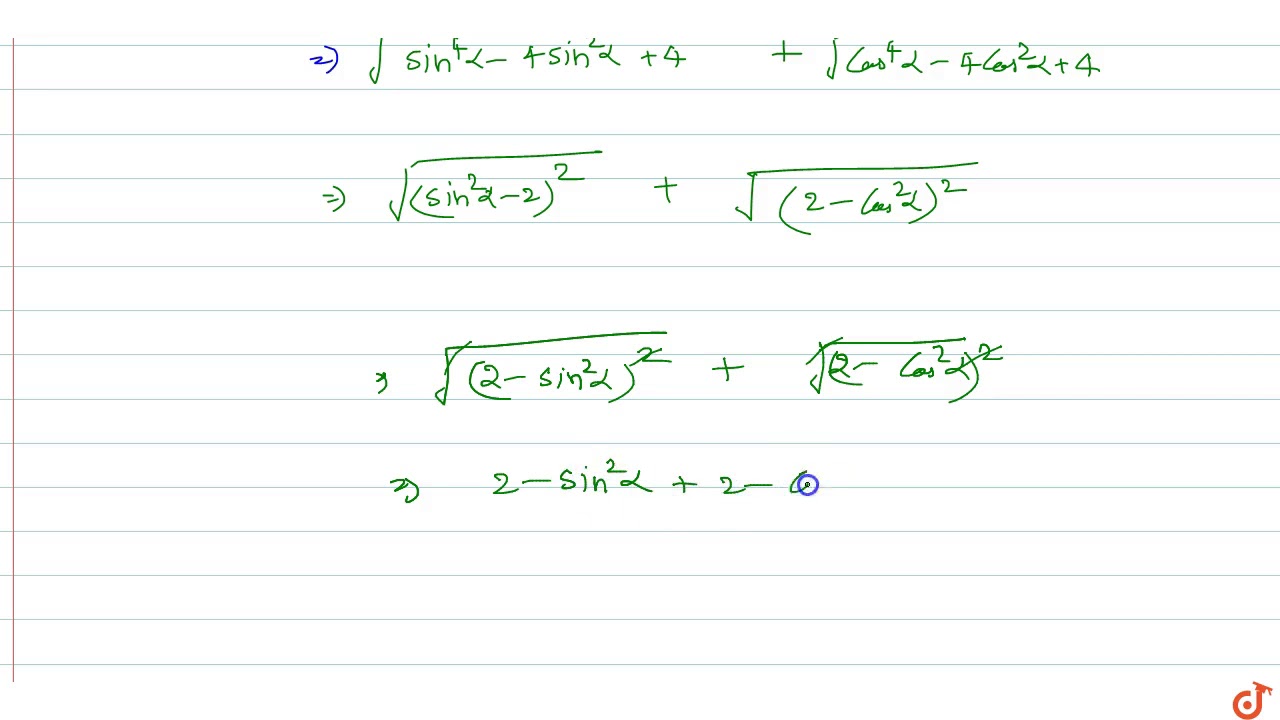 ⇒) √sin⁴α – 4sin²α + 4 + √Cos⁴α – 4Cos²α + 4
⇒) √(sin²α – 2)² + √(2 – Cos²α)²
⇒ √(2 – sin²α)² + √(2 – Cos²α)²
⇒) 2 – sin²α + 2 –